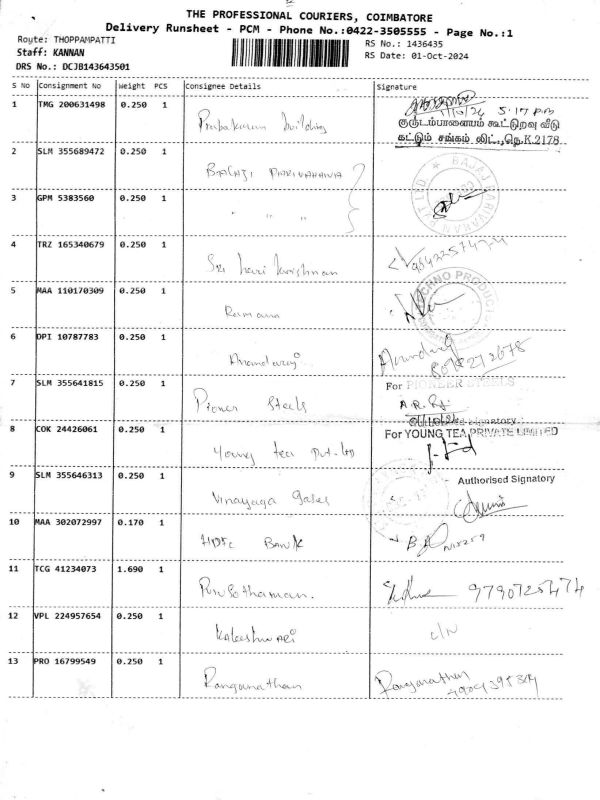 THE PROFESSIONAL COURIERS, COIMBATORE
Delivery Runsheet - PCM - Phone No.:0422-3505555 - Page No.:1
Route: THOPPAMPATTI
RS No.: 1436435
Staff: KANNAN
RS Date: 01-Oct-2024
DRS No.: DCJB143643501
S No Consignment No Weight PCS Consignee Details Signature
1 TMG 200631498 0.250 1 Prabakaran building 1/10/24 5:17 pm
குருடம்பாளையம் கூட்டுறவு வீடு
கட்டும் சங்கம் லிட்.,நெ.K.2178
2 SLM 355689472 0.250 1 BALAJI PARIVAHANA
3 GPM 5383560 0.250 1 " " "
4 TRZ 165340679 0.250 1 Sri hari krishnan
5 MAA 110170309 0.250 1 Ramana
TECHNO PRODUCTS
6 DPI 10787783 0.250 1 Anandaraj
7 SLM 355641815 0.250 1 Pioner Steels For PIONEER STEELS
Authorised Signatory
8 COK 24426061 0.250 1 Young tea Pvt. LTD For YOUNG TEA PRIVATE LIMITED
9 SLM 355646313 0.250 1 Vinayaga Sales Authorised Signatory
10 MAA 302072997 0.170 1 HDFC BANK
11 TCG 41234073 1.690 1 Purusothaman. 9790725474
12 VPL 224957654 0.250 1 Kaleeshwari c/n
13 PRO 16799549 0.250 1 Ranganathan Ranganathan